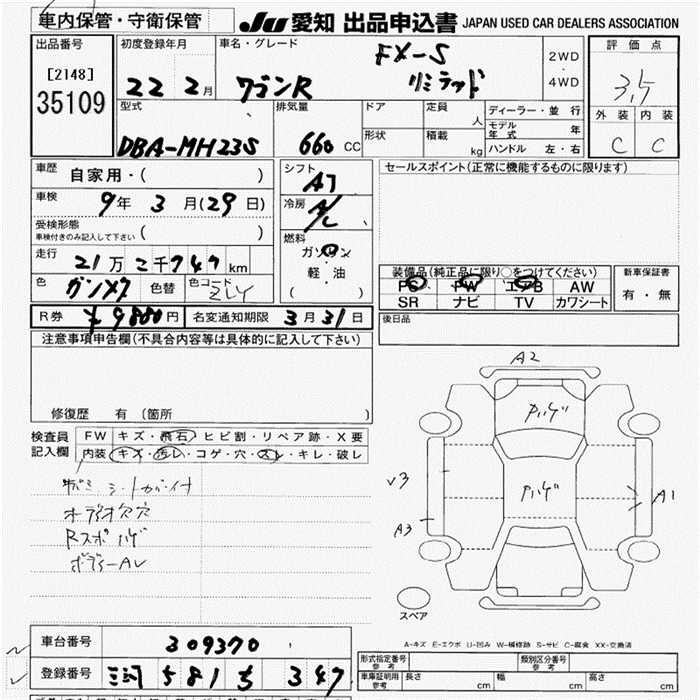 車内保管・守衛保管
JU 愛知 出品申込書 JAPAN USED CAR DEALERS ASSOCIATION
出品番号
[2148]
35109
初度登録年月
22 2月
車名・グレード
FX-S
ワゴンR リミテッド
2WD
・
4WD
評価点
3.5
外装 内装
C C
型式
DBA-MH23S
排気量
660 CC
ドア
形状
定員 人
積載 kg
ディーラー・並行
モデル年式 年
ハンドル 左・右
車歴 自家用・( )
車検 9年 3月(29日)
受検形態
車検付きのみ記入して下さい ( )
走行
21万2千747km
色 ガンメタ 色替 色コード ZLY
シフト
AT
冷房
A/C
燃料
ガソリン
軽・油
( )
セールスポイント(正常に機能するものに限ります)
装備品(純正品に限り○をつけてください)
PS PW エアB AW
SR ナビ TV カワシート
新車保証書
有・無
後日品
R券 ¥9880円 名変通知期限 3月31日
注意事項申告欄(不具合内容等は具体的に記入して下さい)
修復歴 有 (箇所 )
検査員
記入欄
FW キズ・飛石・ヒビ割・リペア跡・X要
内装 キズ・汚レ・コゲ・穴・スレ・キレ・破レ
キバミ シートガバイナ
オーディオ欠穴
Rスポ ハゲ
ボディーAU
A2
カハゲ
カハゲ
V3
A3
A1
スペア
A-キズ E-エクボ U-凹み W-補修跡 S-サビ C-腐食 XX-交換済
車台番号 309370
登録番号 三河 581 ち 347
形式指定番号
参考
類別区分番号
参考
車庫証明用
参考
長さ cm 幅 cm 高さ cm